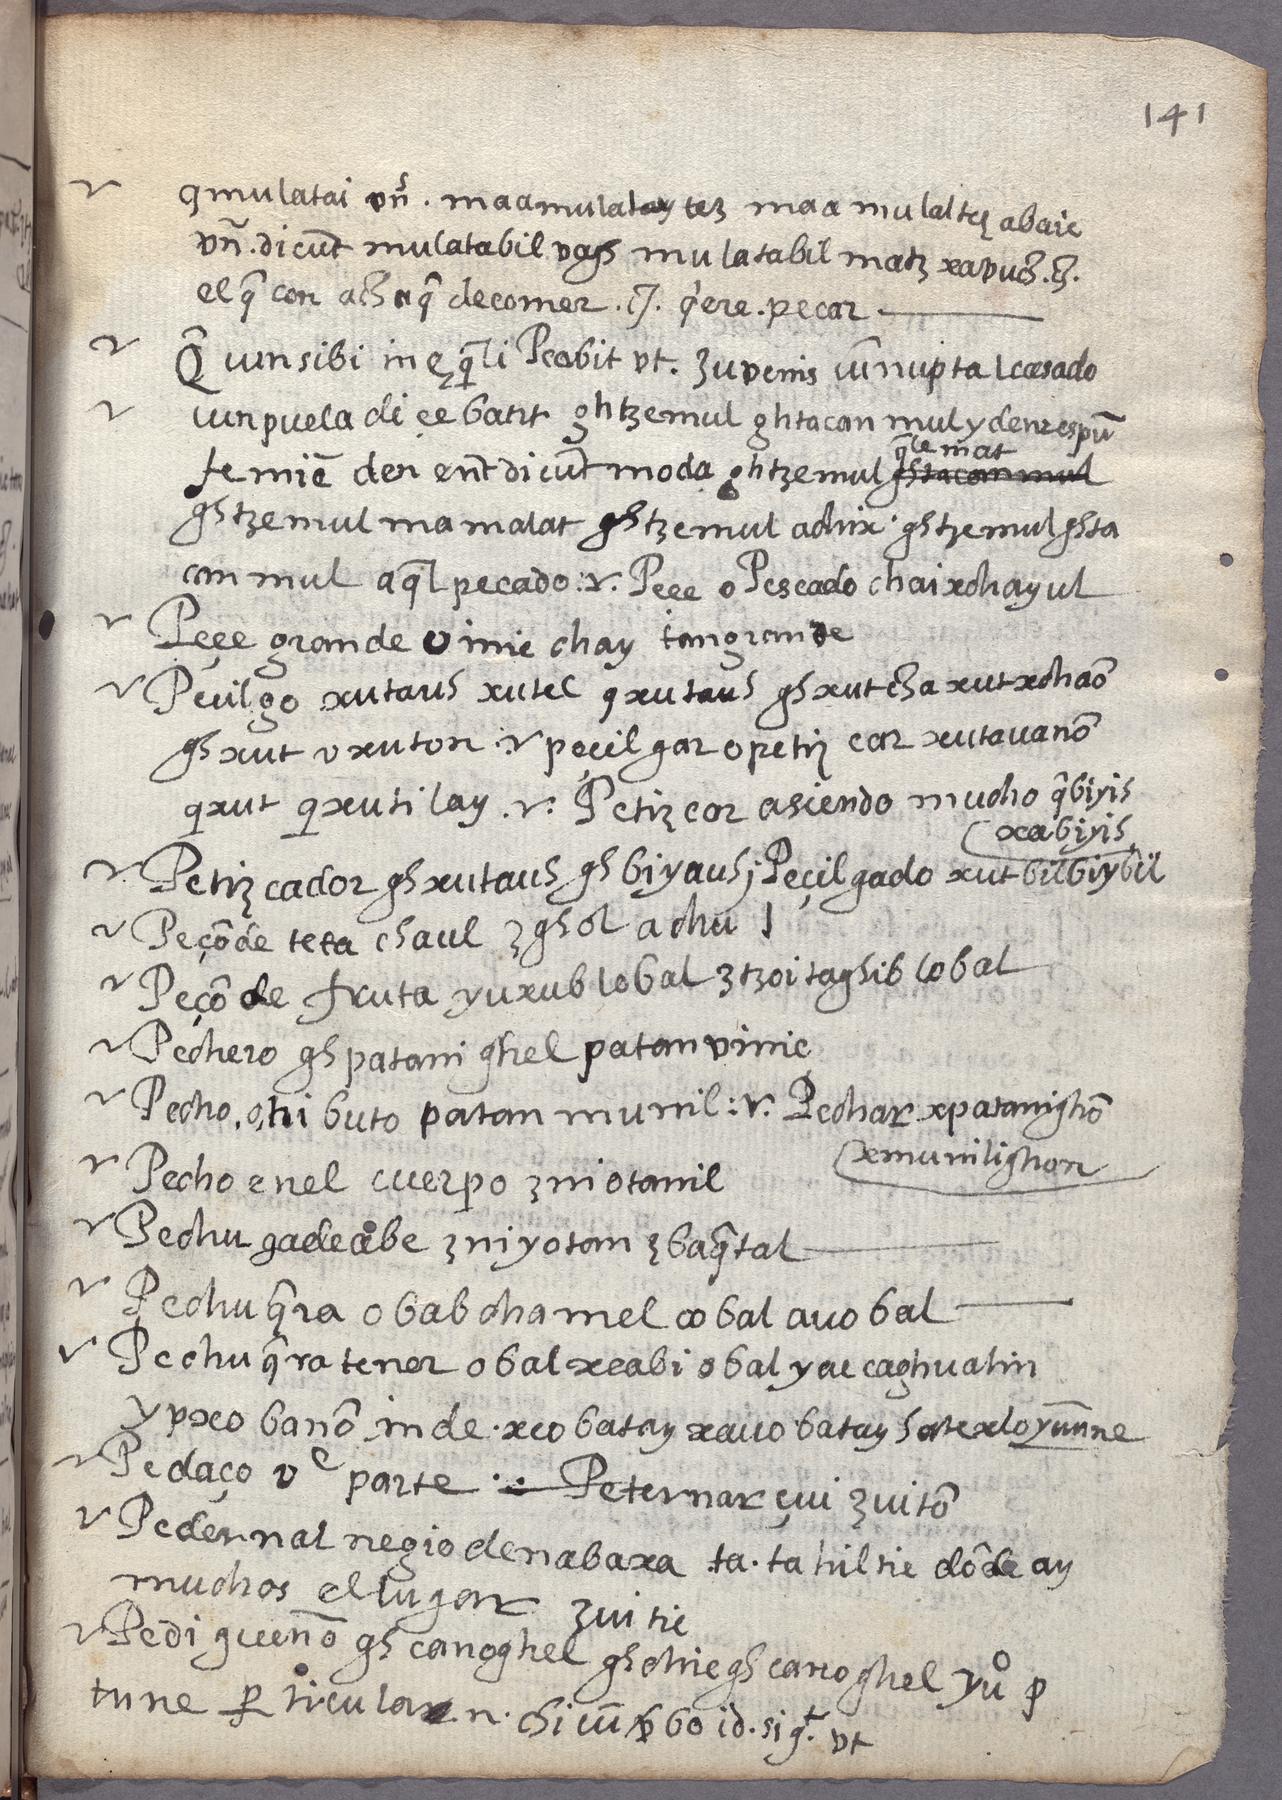 141
qmulatai vn̄s. maamulatay tez maa mulaltez abaie
vn̄. dicūt mulatabil vaɡħ mulatabil matz xavuch. ch.
el q̄ con aɡħ q̄ decomer. cħ. q'ere. pecar
Q̄ uun sibi in ęq̄li Peabit vt. zu venis cū nupta l casado
uun puela di çe batʳ ghtzemul ghtacan mul y den respū
temiē den ent dicūt moda ghtzemul q̄le mat
ghtzemul mamalat ghtzemul achix ghtzemul ghta
can mul aq̄l pecado :v. Peçe o Pescado chai xchayul
Peçe grande vinic chay tan grande
Peçilgo xutauħ xutel qxutauħ għxut cħa xut xchaō
għxut vxuton :v peçilgar o petiz car xutauanō
qxut qxutilay .v: Petizcar asiendo mucho q̄biyiħ
xabiyiħ
Petizcador għxutauħ għbiyauħ; Peçilgado xutbil biybil
Peçō de teta cħaul zgħol achu l
Peçō de fruta yuxub lobal ztzoi tagħib lobal
Pechero għpatani għel patan vinic
Pecho, o tributo patan munil :v. Pechar xpatanighō
xemunilighon
Pecho enel cuerpo zniotanil
Pechuga de abe zniyotan zbaq̄tal
Pechuq̄ra obab chamel obal auobal
Pechuq̄ra tener obal xeabi obal yae caghualin
ypxo banō inde .xcobatay xauobatay hatexloyuūne
Pedaço vᵉ parte :: Peternar çui zuitō
Pedernal negio denabaxa ta. tahiltie dōde ay
muchos el lugar zuitie
Pedi gueño għcanoghel għchiegħcanoghel yuº p
tune ꝑticular .n. cħi cū ꝑbo id. sigt. vt